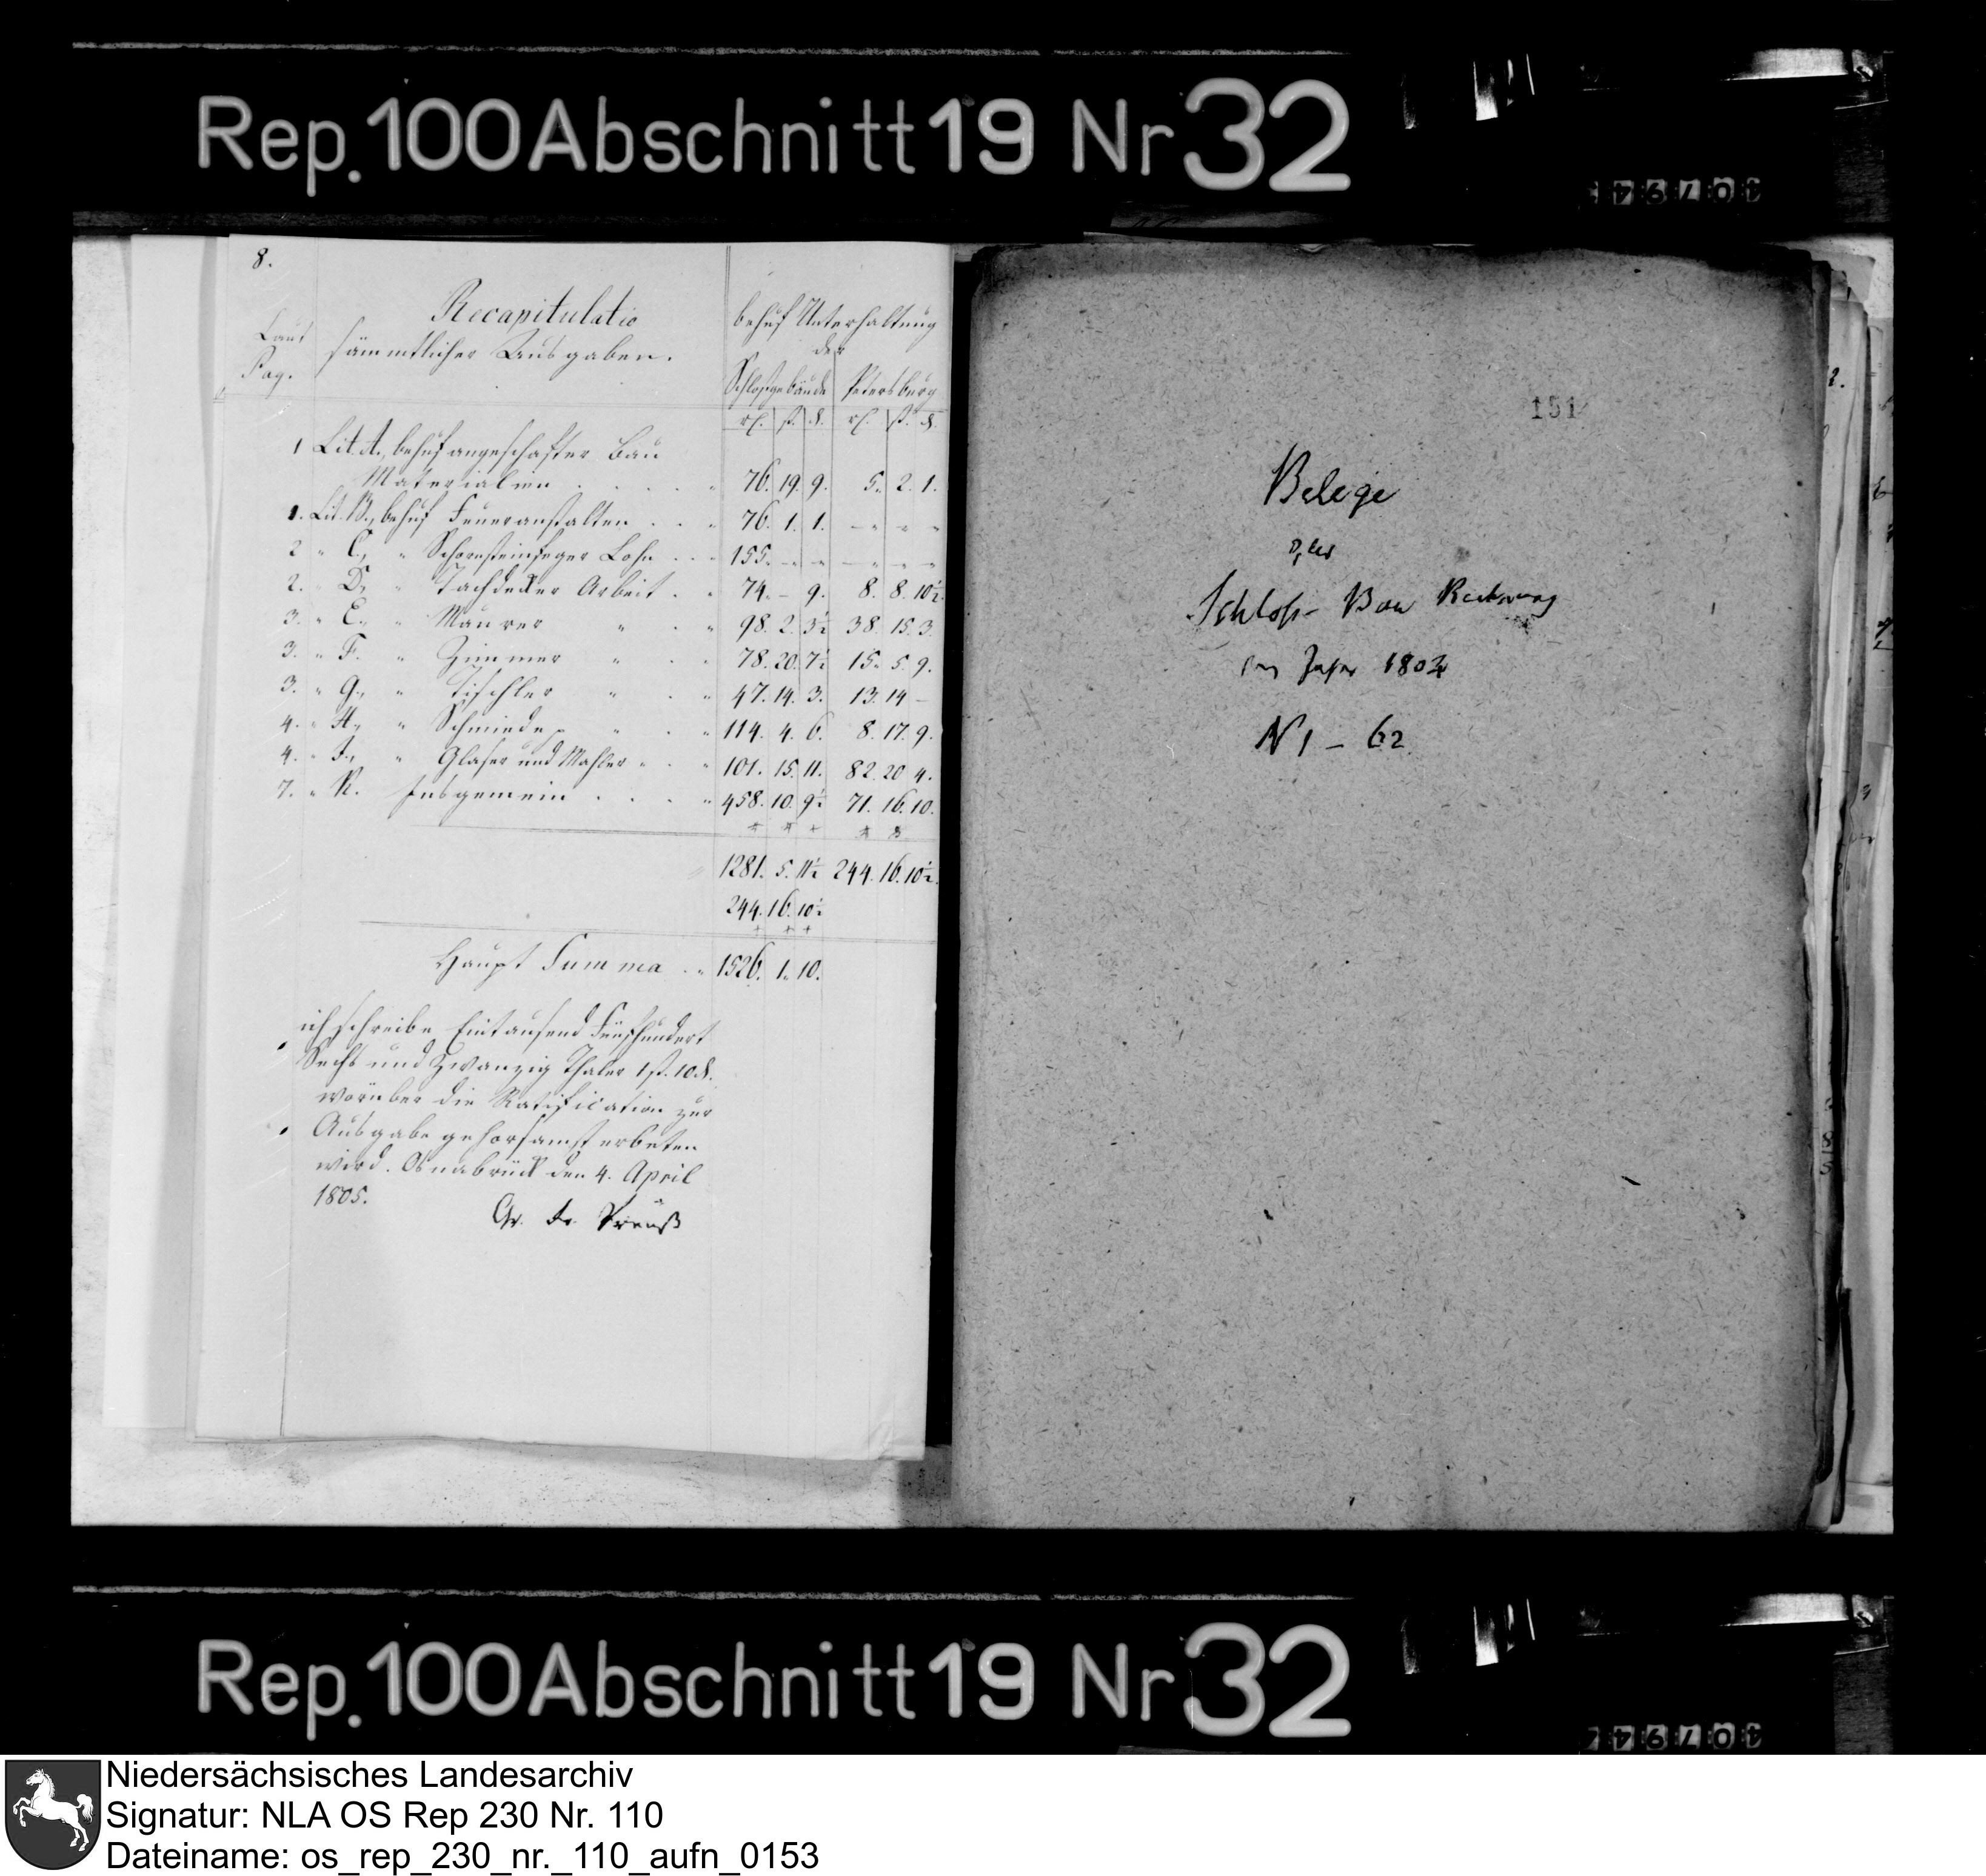 Rep. 100 Abschnitt 19 Nr 32
40794
8.
Recapitulatio
sämmtlicher Ausgaben.
Laut
Pag.
behuf Unterhaltung
der
Schloßgebäude Petersburg
rl. ß. d. rl. ß. d.
1 Lit. A., behuf angeschafter Bau
Materialien . . . . „ 76. 19. 9. 5. 2. 1.
1. Lit. B., behuf Feueranstalten . . „ 76. 1. 1. – „ „ „
2 „ C., „ Schornsteinfeger Lohn . . . 155. – – – – –
2. „ D., „ Dachdecker Arbeit . „ 74. – 9. 8. 8. 10½.
3. „ E., „ Maurer „ . „ 98. 2. 3½ 38. 15. 3.
3. „ F. „ Zimmer „ . „ 78. 20. 7½ 15. 5. 9.
3. „ G., „ Tischler „ . „ 47. 14. 3. 13. 14 –
4. „ H., „ Schmiede „ . „ 114. 4. 6. 8. 17. 9.
4. „ J., „ Glaser und Mahler „ . „ 101. 15. 11. 82. 20 4.
7. „ K. Insgemein . . . „ 458. 10. 9½ 71. 16. 10.
1281. 5. 11½ 244. 16. 10½.
244. 16. 10½
Haupt Summa . „ 1526. 1. 10.
ich schreibe Eintausend Fünfhundert
Sechs und Zwanzig Thaler 1 ß. 10 d.
worüber die Ratification zur
Ausgabe gehorsamst erbeten
wird. Osnabrück den 4. April
1805.
Preuß
151
Belege
Schloß- Bau Rechnung
Jahr 1804
N 1 – 62
2.
Rep. 100 Abschnitt 19 Nr 32
40794
Niedersächsisches Landesarchiv
Signatur: NLA OS Rep 230 Nr. 110
Dateiname: os_rep_230_nr._110_aufn_0153